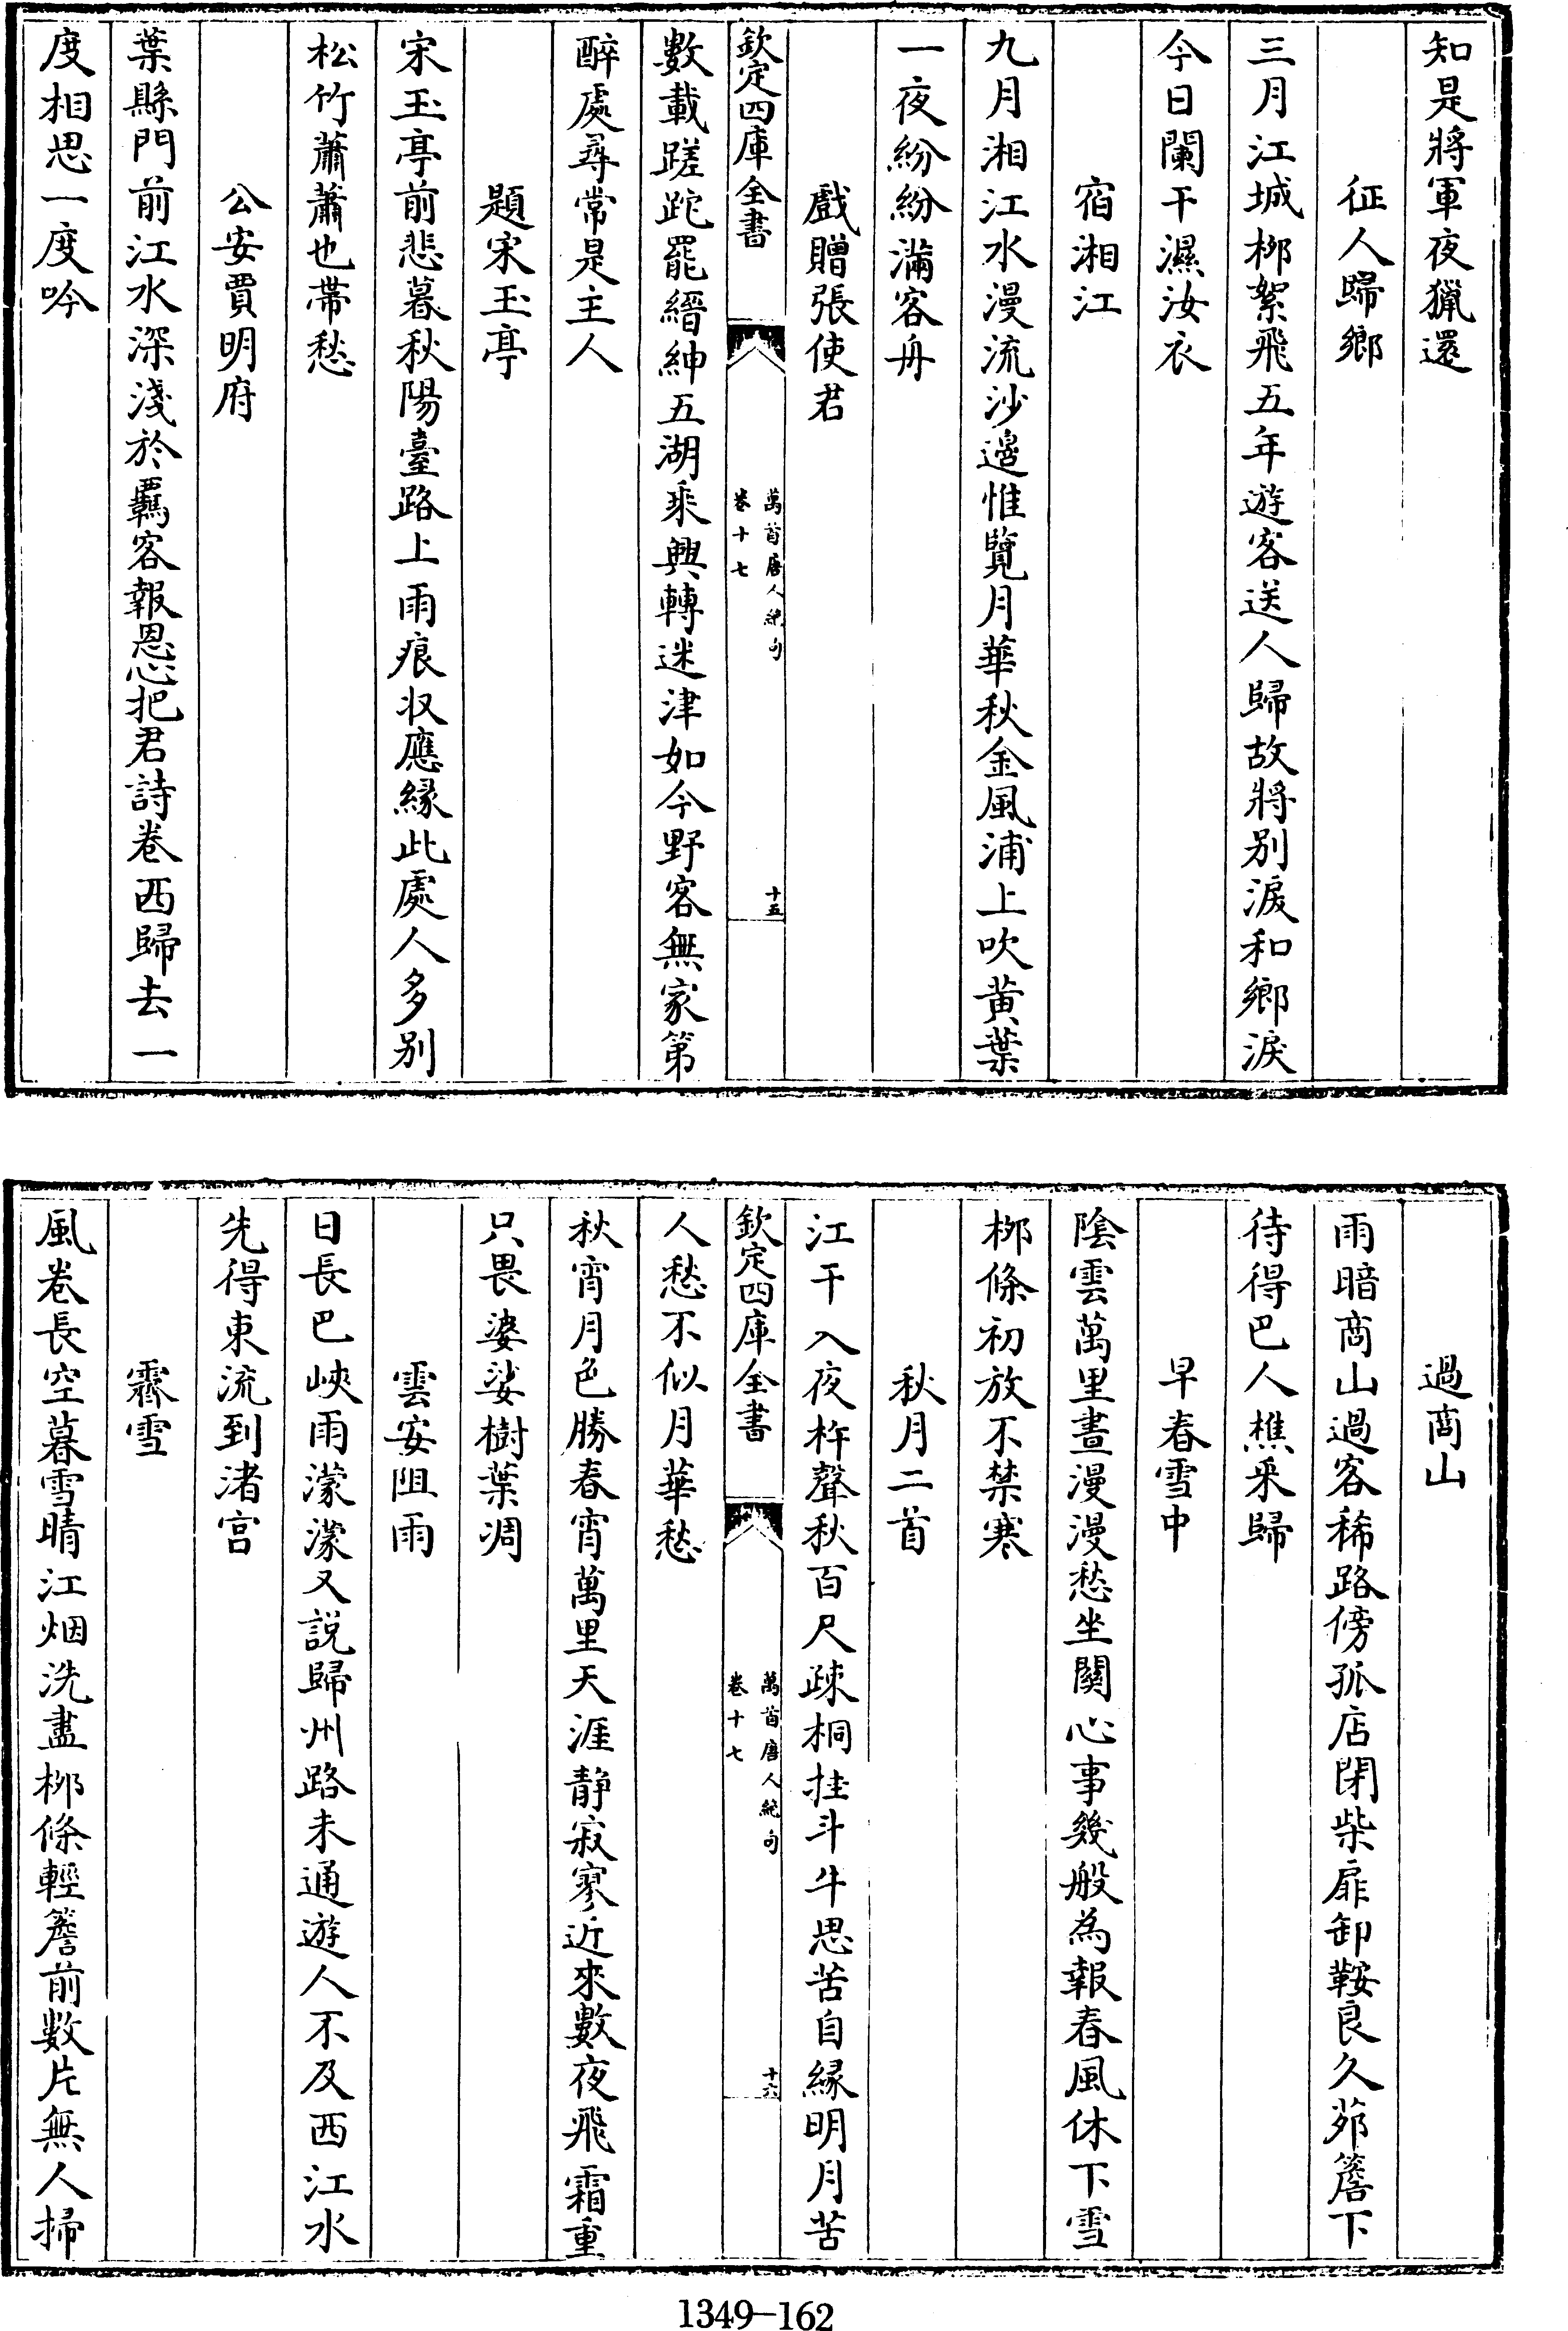 知是將軍夜獵還
征人歸鄉
三月江城栁絮飛五年遊客送人歸故將别淚和鄉淚
今日闌干濕汝衣
宿湘江
九月湘江水漫流沙邉惟覽月華秋金風浦上吹黄葉
一夜紛紛滿客舟
戲贈張使君
欽定四庫全書
萬首唐人絶句
卷十七
十五
數載蹉跎罷縉紳五湖乘興轉迷津如今野客無家第
醉處尋常是主人
題宋玉亭
宋玉亭前悲暮秋陽臺路上雨痕收應緣此處人多别
松竹蕭蕭也帶愁
公安賈明府
葉縣門前江水深淺於羈客報恩心把君詩卷西歸去一
度相思一度吟
過商山
雨暗商山過客稀路傍孤店閉柴扉卸鞍良久茆簷下
待得巴人樵采歸
早春雪中
陰雲萬里晝漫漫愁坐關心事幾般為報春風休下雪
栁條初放不禁寒
秋月二首
江干入夜杵聲秋百尺疎桐挂斗牛思苦自緣明月苦
欽定四庫全書
萬首唐人絶句
卷十七
十六
人愁不似月華愁
秋宵月色勝春宵萬里天涯静寂寥近來數夜飛霜重
只畏婆娑樹葉凋
雲安阻雨
日長巴峽雨濛濛又説歸州路未通遊人不及西江水
先得東流到渚宫
霽雪
風卷長空暮雪晴江烟洗盡栁條輕簷前數片無人掃
1349-162